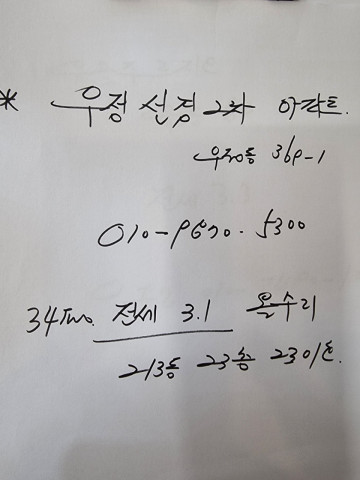 * 우정 선경 2차 아파트.
우정동 369-1
010-9630.5300
34Two. 전세 3.1 올수리
213동 23층 2301호.